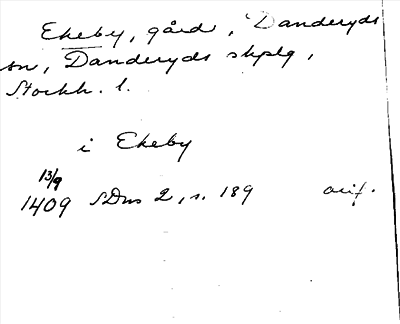 Ekeby, gård, Danderyds
sn, Danderyds skplg,
Stockh. l.
i Ekeby
13/9
1409 SDns 2, s. 189 orig.